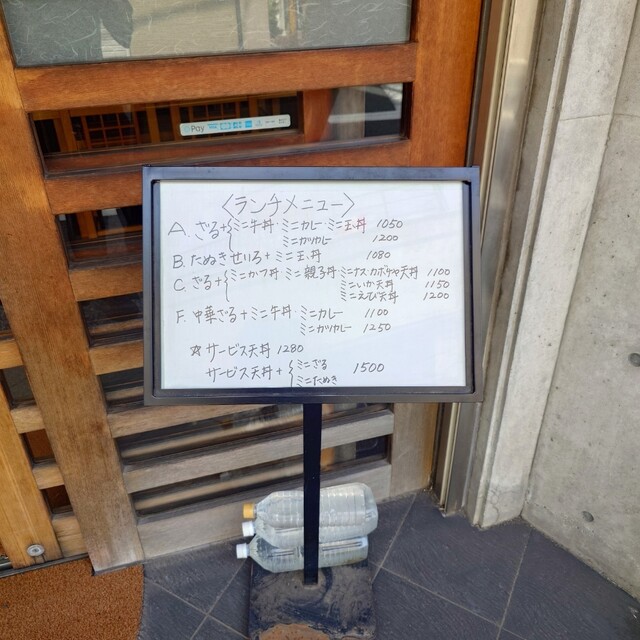 Pay
〈ランチメニュー〉
A. ざる+{ミニ牛丼 ミニカレー ミニ玉丼 1050
ミニカツカレー 1200
B. たぬきせいろ+ミニ玉丼 1080
C. ざる+{ミニかつ丼 ミニ親子丼 ミニナスカボチャ天丼 1100
ミニいか天丼 1150
ミニえび天丼 1200
F. 中華ざる+ミニ牛丼 ミニカレー 1100
ミニカツカレー 1250
☆サービス天丼 1280
サービス天丼+{ミニざる 1500
ミニたぬき